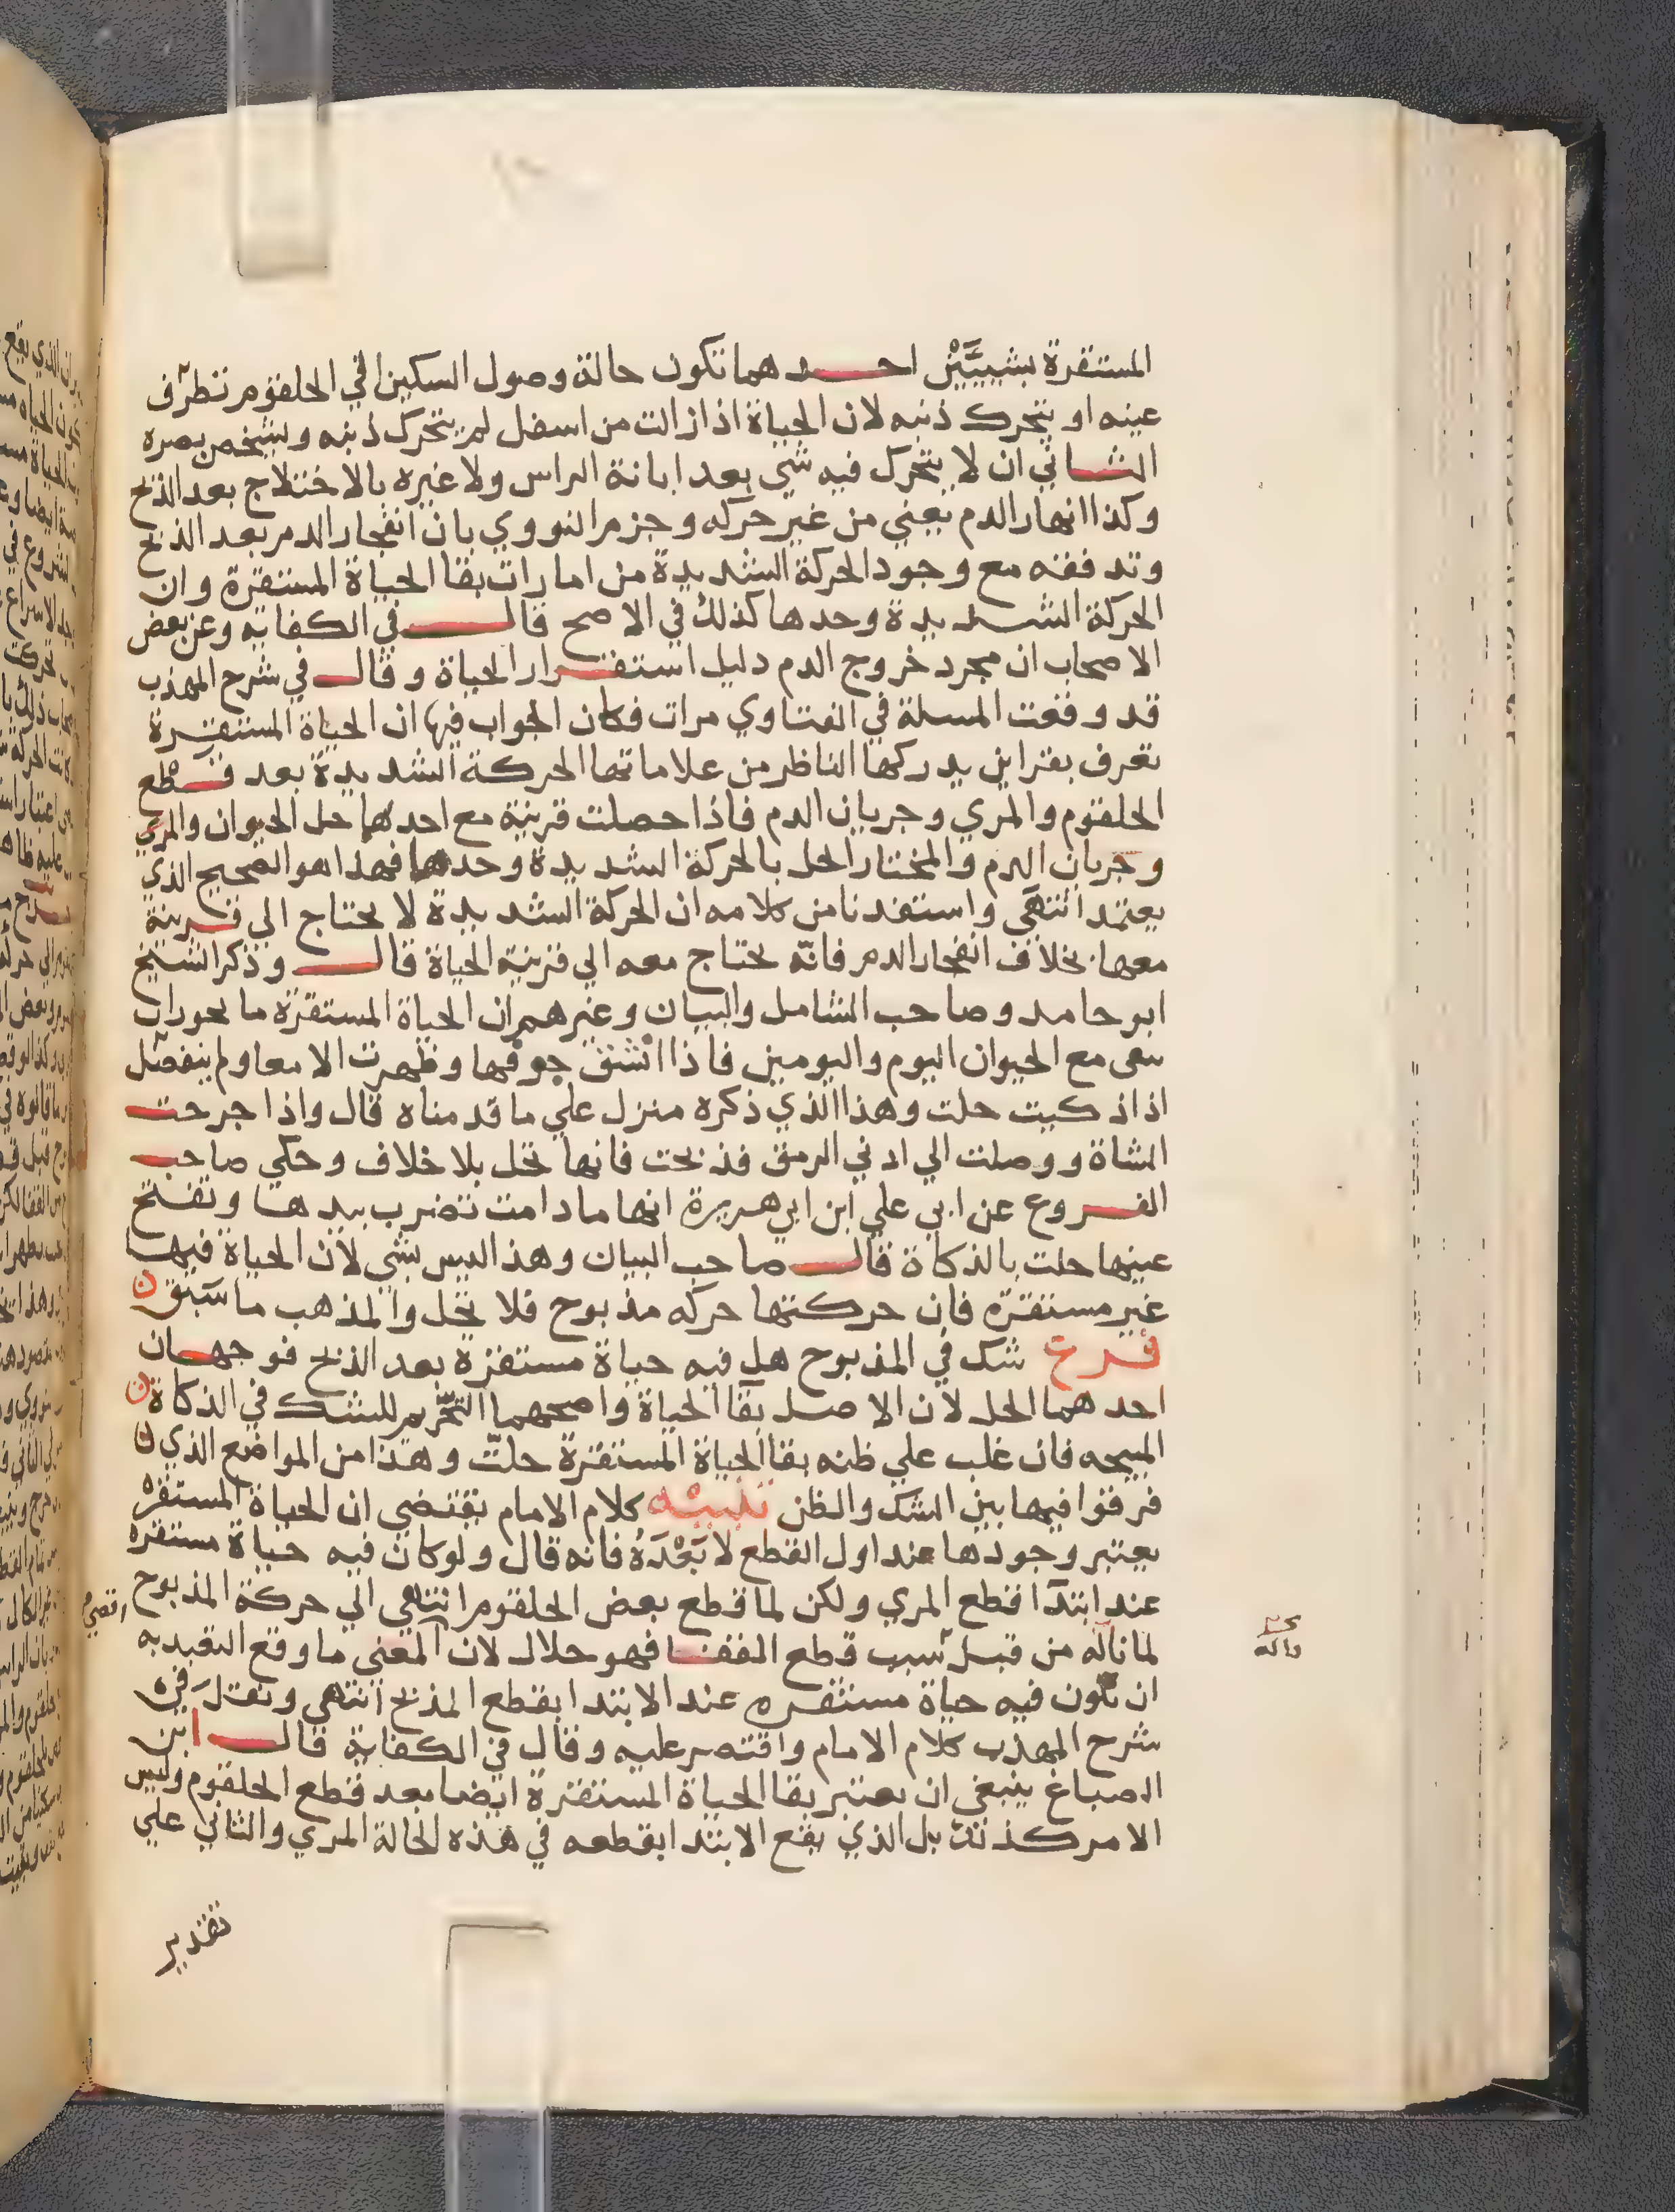 المستقرة بشييَّيْن احدهما تكون حالة وصول السكين الي الحلقوم تطرف
عينه او يتحرك ذنبه لان الحياة اذا زالت من اسفل لم يتحرك ذنبه ويشخص بصره
الثاني ان لا يتحرك فيه شي بعد ابانة الراس ولا عبره بالاختلاج بعد الذبح
وكذا انهار الدم يعني من غير حركه وجزم النووي بان انفجار الدم بعد الذبح
وتدفقه مع وجود الحركة الشديدة من امارات بقا الحياة المستقرة وان
الحركة الشديدة وحدها كذلك في الاصح قال في الكفايه وعن بعض
الاصحاب ان مجرد خروج الدم دليل استقرار الحياة وقال في شرح المهذب
قد وقعت المسلة في الفتاوي مرات فكان الجواب فيها ان الحياة المستقرة
تعرف بقراين يدركها الناظر من علاماتها الحركة الشديدة بعد قطع
الحلقوم والمري وجريان الدم فاذا حصلت قرينة مع احدها حل الحيوان والمري
وجريان الدم والمختار الحل بالحركة الشديدة وحدها فهذا هو الصحيح الذي
يعتمد انتهي واستفدنا من كلامه ان الحركة الشديدة لا يحتاج الي قرينة
معها بخلاف انفجار الدم فانّه يحتاج معه الي قرينة الحياة قال وذكر الشيخ
ابو حامد وصاحب الشامل والبيان وغيرهم ان الحياة المستقرة ما يجوز ان
يبقي مع الحيوان اليوم واليومين فاذا انشق جوفها وظهرت الامعا ولم ينفصل
اذا ذكيت حلت وهذا الذي ذكره منزل علي ما قدمناه قال واذا جرحت
الشاة ووصلت الي ادني الرمق فذبحت فانها تحل بلا خلاف وحكي صاحب
الفروع عن ابي علي ابن ابي هريرة انها ما دامت تضرب بيدها وتفتح
عينها حلت بالذكاة قال صاحب البيان وهذا ليس بشي لان الحياة فيها
غير مستقره فان حركتها حركه مذبوح فلا تحل والمذهب ما سبق ن
فرع شك في المذبوح هل فيه حياة مستقرة بعد الذبح فوجهان
احدهما الحل لان الاصل بقا الحياة واصحهما التحريم للشك في الذكاة ن
المبيحه فان غلب علي ظنه بقا الحياة المستقرة حلت وهذا من المواضع الذي ن
فرقوا فيها بين الشك والظن تنبيه كلام الامام يقتضي ان الحياة المستقره
يعتبر وجودها عند اول القطع لا بَعْدَهُ فانه قال ولو كان فيه حياة مستقره
عند ابتدا قطع المري ولكن لما قطع بعض الحلقوم انتهي الي حركة المذبوح
لما ناله من قبل سبب قطع القفا فهو حلال لان المعني ما وقع التقيد به
ان تكون فيه حياة مستقره عند الابتدا بقطع المذبح انتهي ونقل في
شرح المهذب كلام الامام واقتصر عليه وقال في الكفاية قال ابن
الصباغ ينبغي ان يعتبر بقا الحياة المستقرة ايضا بعد قطع الحلقوم وليس
الامر كذلك بل الذي يقع الابتدا بقطعه في هذه الحالة المري والثاني علي
تقدير